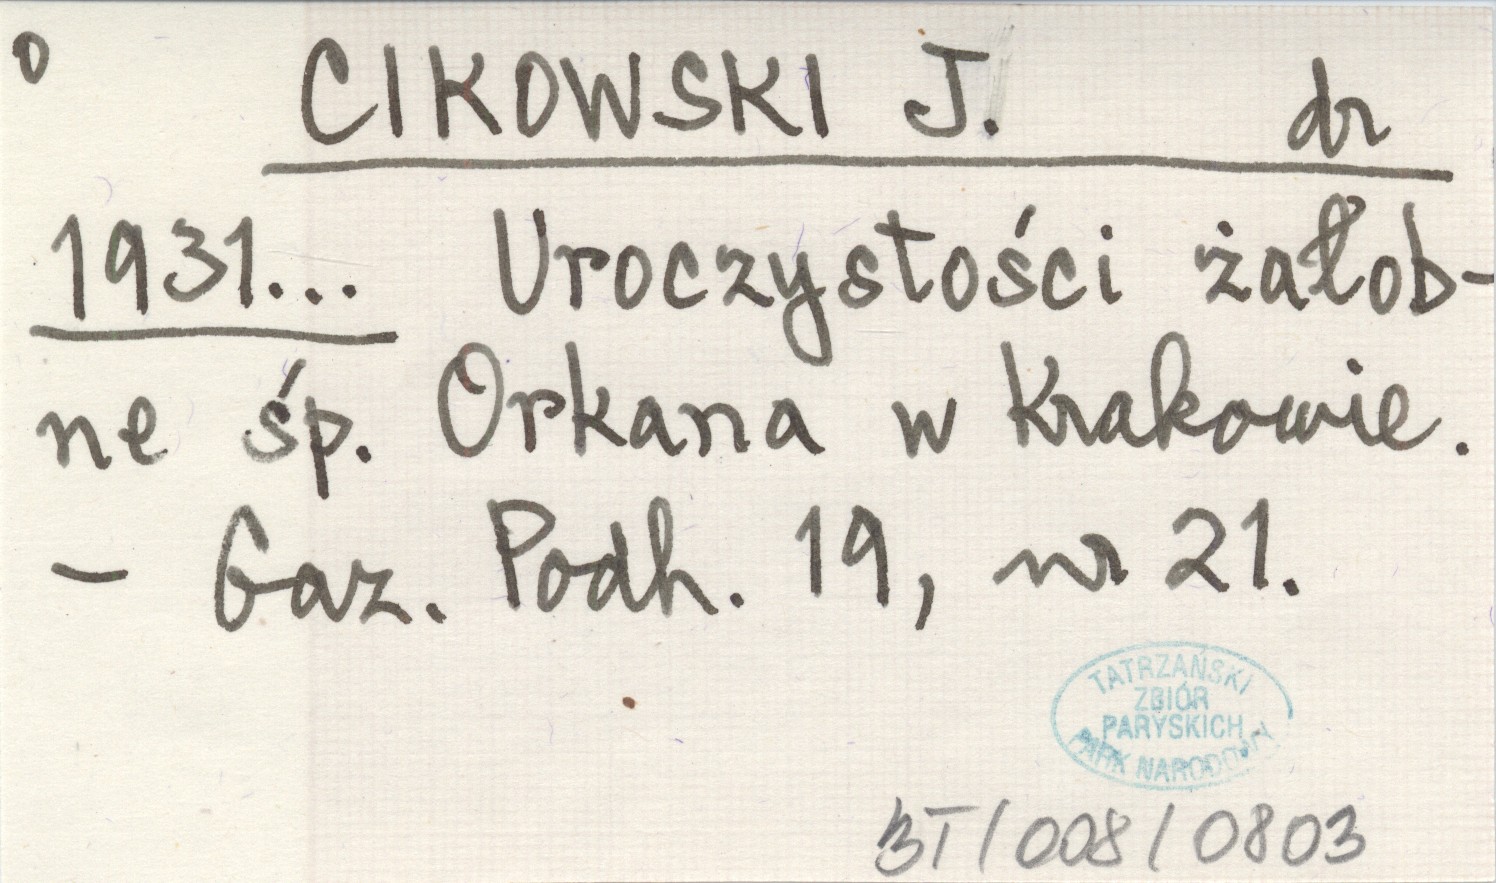 o CIKOWSKI J. dr
1931... Uroczystości żałob-
ne śp. Orkana w Krakowie.
- Gaz. Podh. 19, nr 21.
TATRZAŃSKI
ZBIÓR
PARYSKICH
PARK NARODOWY
BT/008/0803